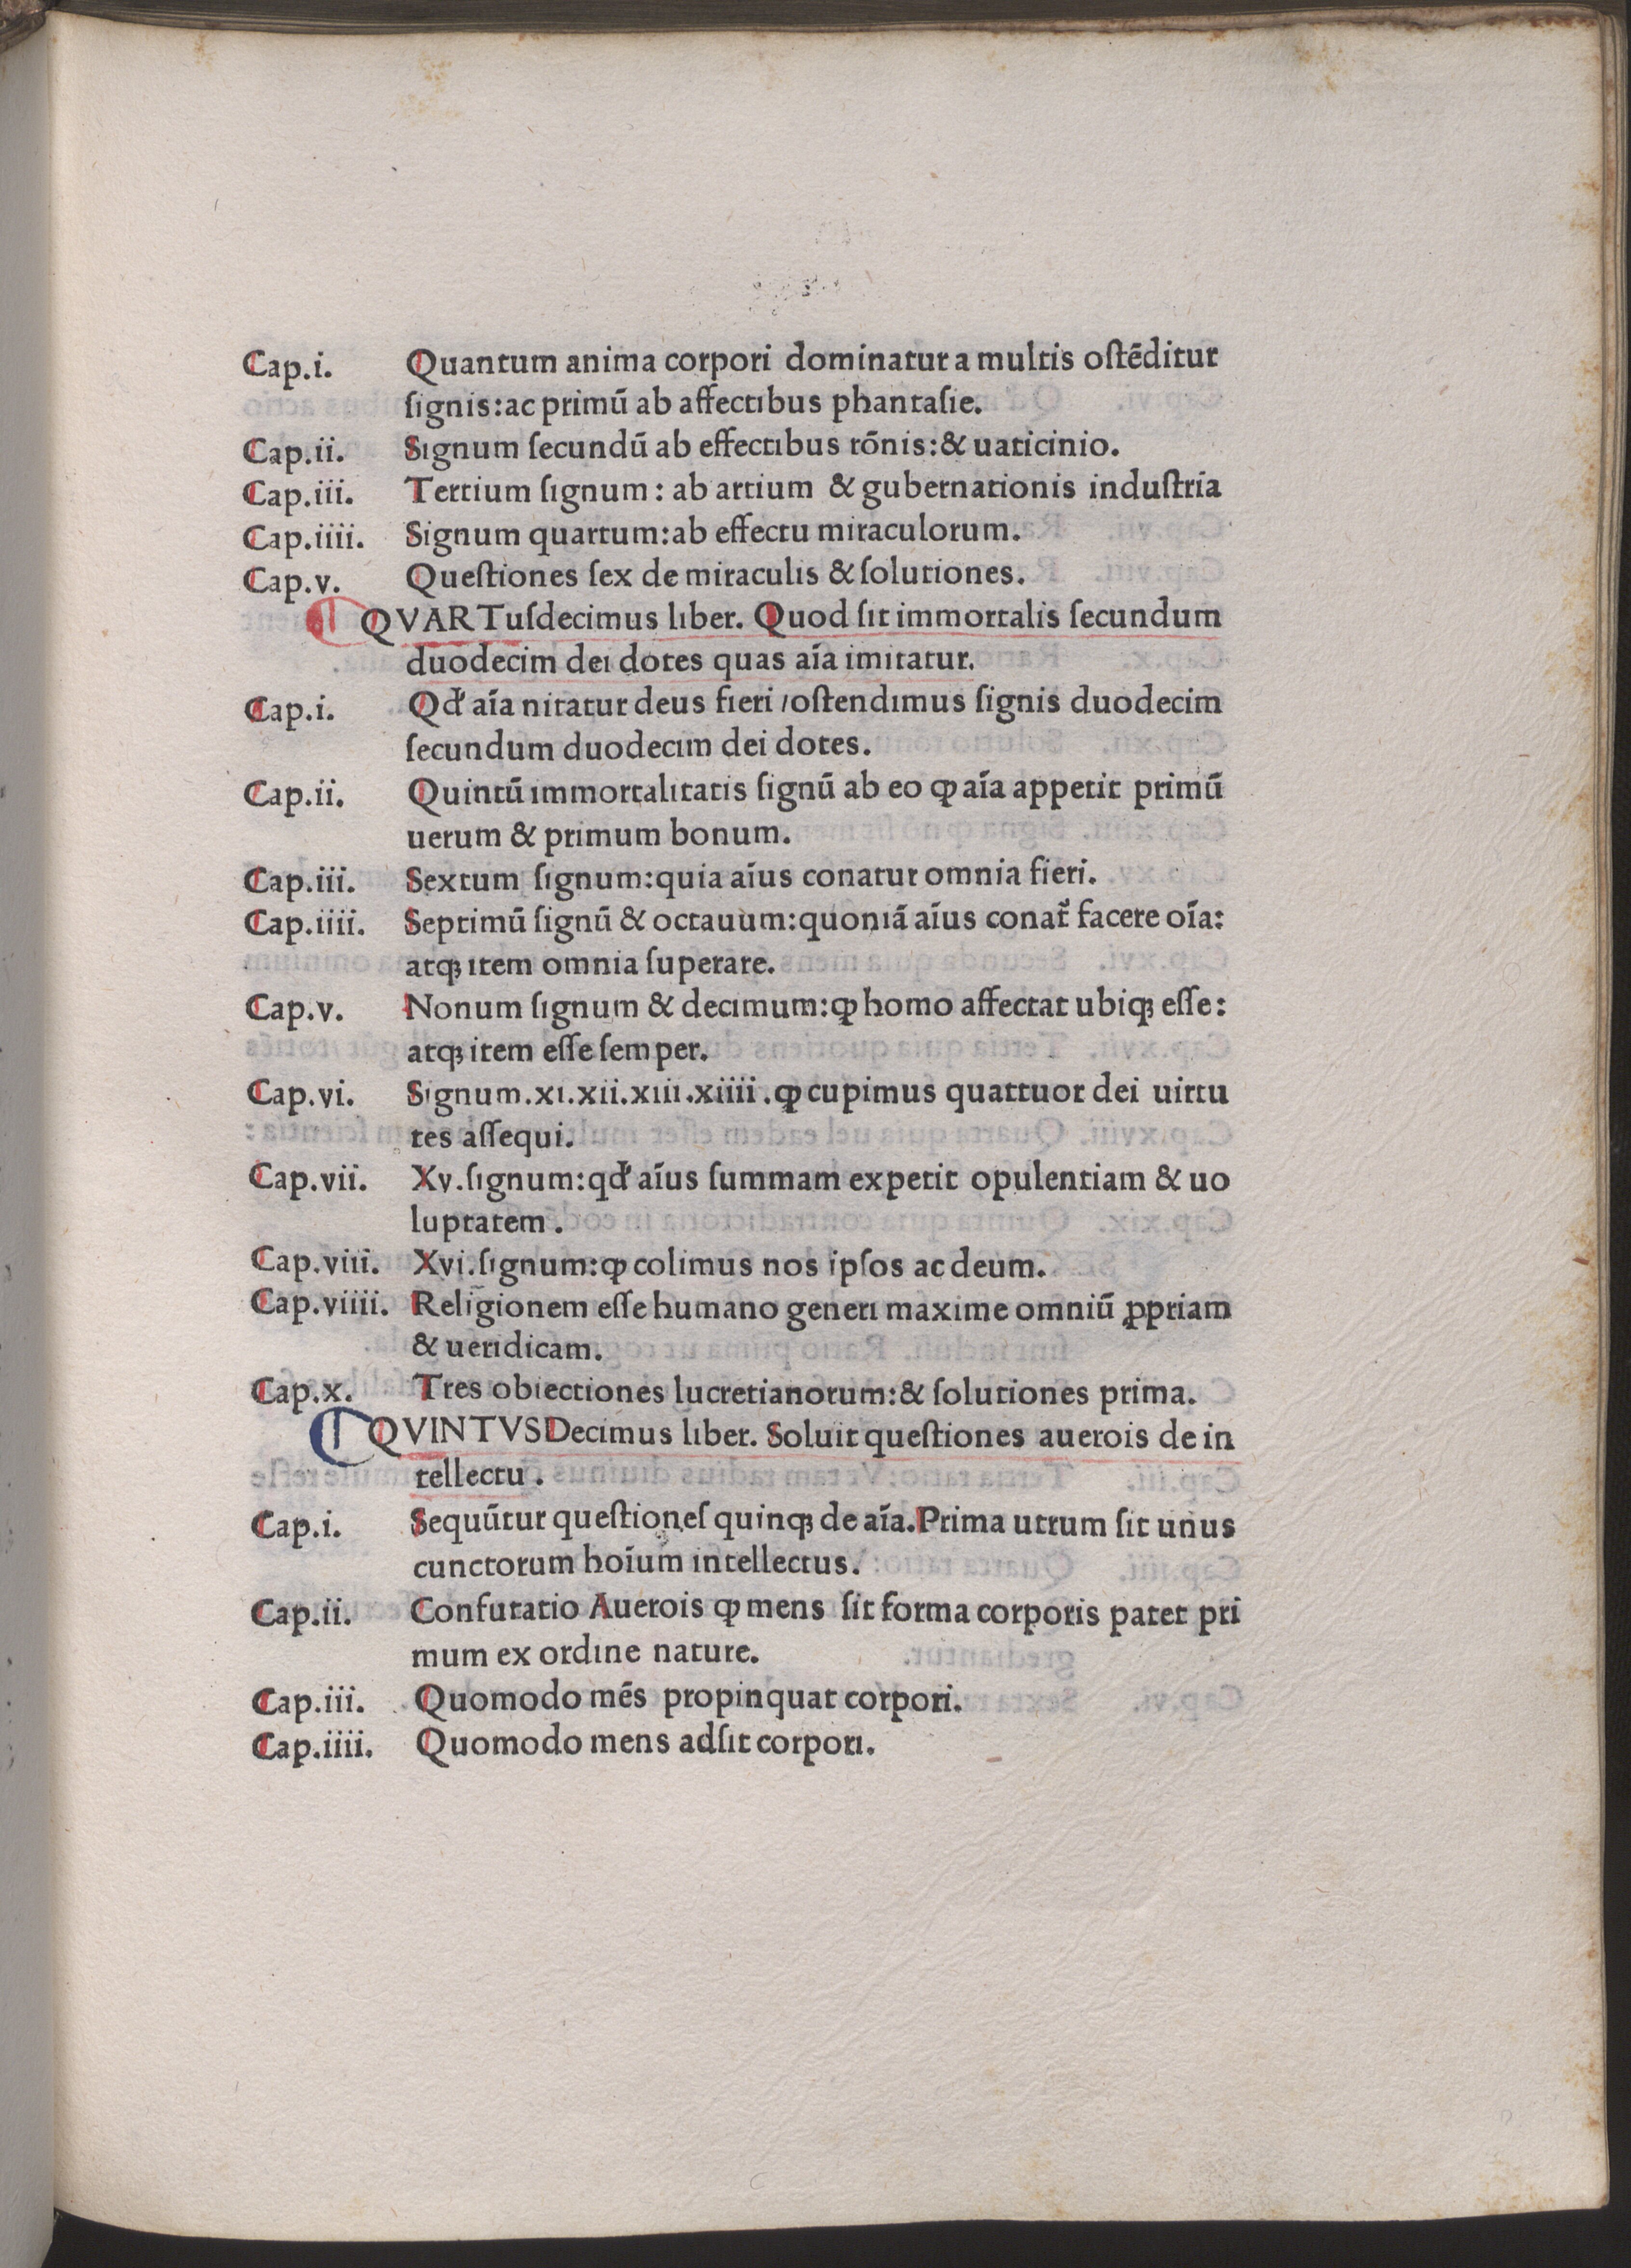 Cap.i. Quantum anima corpori dominatur a multis oſtēditur
ſignis:ac primū ab affectibus phantaſie.
Cap.ii. Signum ſecundū ab effectibus rōnis:& uaticinio.
Cap.iii. Tertium ſignum: ab artium & gubernationis induſtria
Cap.iiii. Signum quartum:ab effectu miraculorum.
Cap.v. Queſtiones ſex de miraculis & ſolutiones.
¶ QVARTuſdecimus liber. Quod ſit immortalis ſecundum
duodecim dei dotes quas aīa imitatur.
Cap.i. Qđ aīa nitatur deus fieri /oſtendimus ſignis duodecim
ſecundum duodecim dei dotes.
Cap.ii. Quintū immortalitatis ſignū ab eo ꝙ aīa appetit primū
uerum & primum bonum.
Cap.iii. Sextum ſignum:quia aīus conatur omnia fieri.
Cap.iiii. Septimū ſignū & octauum:quoniā aīus conat᷑ facere oīa:
atqꝫ item omnia ſuperare.
Cap.v. Nonum ſignum & decimum:ꝙ homo affectat ubiqꝫ eſſe:
atqꝫ item eſſe ſemper.
Cap.vi. Signum.xi.xii.xiii.xiiii.ꝙ cupimus quattuor dei uirtu
tes aſſequi.
Cap.vii. Xv.ſignum:qđ aīus ſummam expetit opulentiam & uo
luptatem.
Cap.viii. Xvi.ſignum:ꝙ colimus nos ipſos ac deum.
Cap.viiii. Religionem eſſe humano generi maxime omniū ꝓpriam
& ueridicam.
Cap.x. Tres obiectiones lucretianorum:& ſolutiones prima.
¶ QVINTVSDecimus liber. Soluit queſtiones auerois de in
tellectu.
Cap.i. Sequūtur queſtioneſ quinqꝫ de aīa.Prima utrum ſit unus
cunctorum hoīum intellectus.
Cap.ii. Confutatio Auerois ꝙ mens ſit forma corporis patet pri
mum ex ordine nature.
Cap.iii. Quomodo mēs propinquat corpori.
Cap.iiii. Quomodo mens adſit corpori.